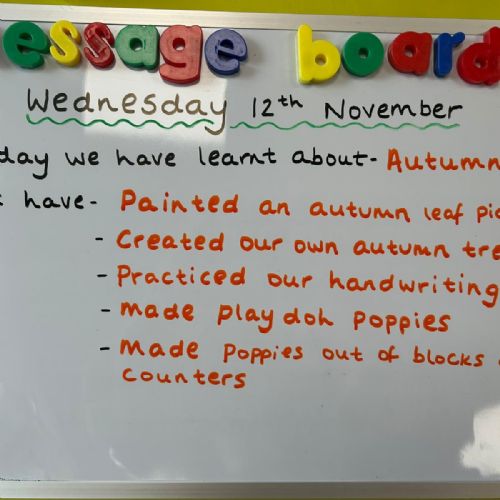 essage board
Wednesday 12th November
day we have learnt about- Autumn
have- Painted an autumn leaf pic
- Created our own autumn tre
- Practiced our handwriting
- made playdoh poppies
- Made poppies out of blocks
counters